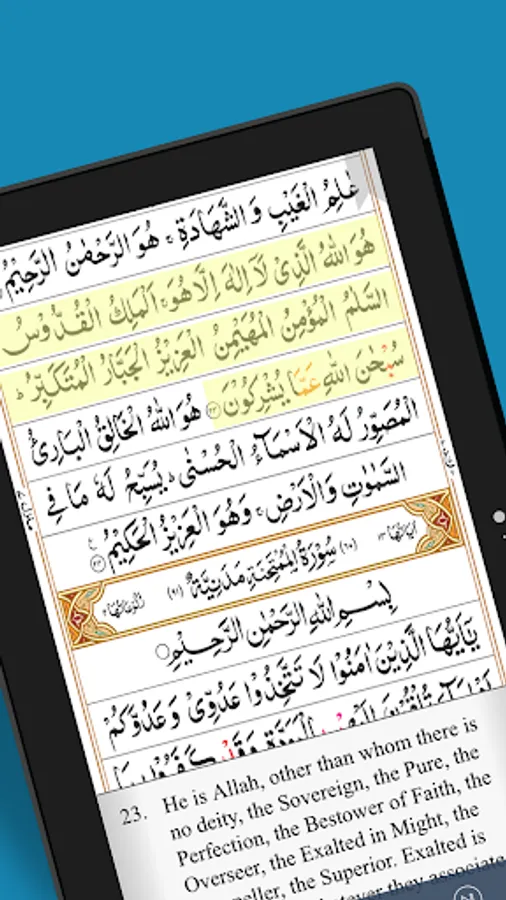 عٰلِمُ الْغَيْبِ وَالشَّهَادَةِ ۚ هُوَ الرَّحْمٰنُ الرَّحِيْمُ
هُوَ اللّٰهُ الَّذِىْ لَاۤ اِلٰهَ اِلَّا هُوَ ۚ اَلْمَلِكُ الْقُدُّوْسُ
السَّلٰمُ الْمُؤْمِنُ الْمُهَيْمِنُ الْعَزِيْزُ الْجَبَّارُ الْمُتَكَبِّرُ ؕ
سُبْحٰنَ اللّٰهِ عَمَّا يُشْرِكُوْنَ ﴿۲۳﴾ هُوَ اللّٰهُ الْخَالِقُ الْبَارِئُ
الْمُصَوِّرُ لَهُ الْاَسْمَآءُ الْحُسْنٰى ؕ يُسَبِّحُ لَهٗ مَا فِى
السَّمٰوٰتِ وَالْاَرْضِ ۚ وَهُوَ الْعَزِيْزُ الْحَكِيْمُ ﴿۲۴﴾
اٰيَاتُهَا ۱۳ (۶۰) سُوْرَةُ الْمُمْتَحِنَةِ مَدَنِيَّةٌ (۹۱) رُكُوْعَاتُهَا ۲
بِسْمِ اللّٰهِ الرَّحْمٰنِ الرَّحِيْمِ
يٰۤاَيُّهَا الَّذِيْنَ اٰمَنُوْا لَا تَتَّخِذُوْا عَدُوِّىْ وَعَدُوَّكُمْ
23. He is Allah, other than whom there is
no deity, the Sovereign, the Pure, the
Perfection, the Bestower of Faith, the
Overseer, the Exalted in Might, the
the Superior. Exalted is
they associate